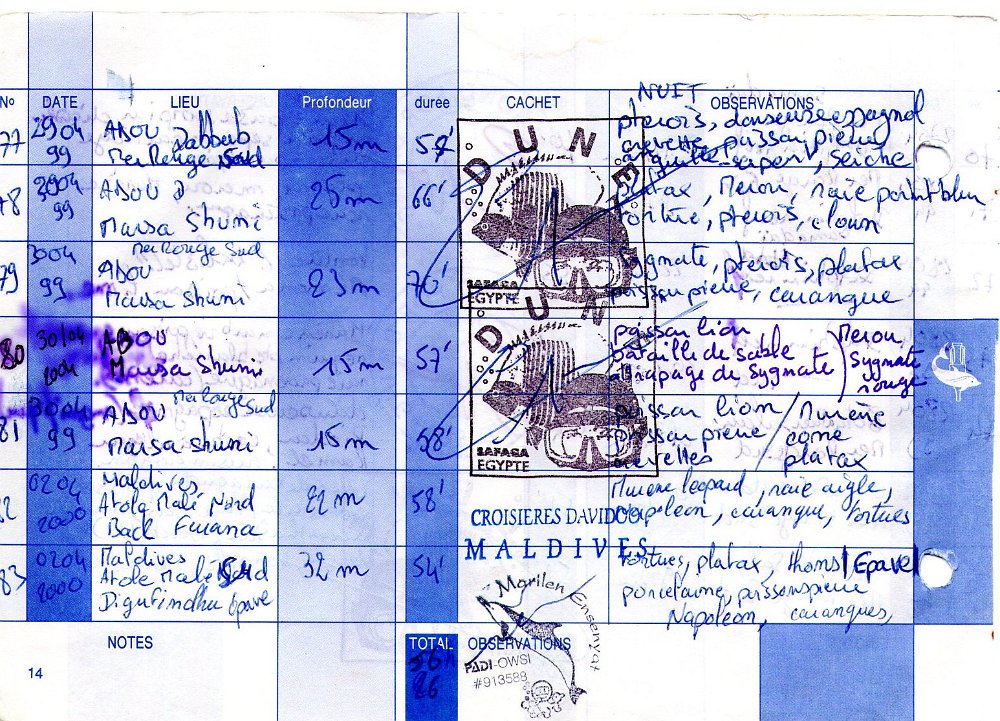 NUIT
N° DATE LIEU Profondeur durée CACHET OBSERVATIONS
77 2904 ABOU Dabbab 15m 52' pterois, danseuse espagnol
99 Mer Rouge Sud crevette, poisson pierre
anguille-serpent, seiche
78 3004 ABOU D 25m 66' platax, Merou, raie point bleu
99 Marsa Shuni tortue, pterois, clown
Mer Rouge Sud
79 3004 ABOU 23m 70' sygnate, pterois, platax
99 Marsa Shuni poisson pierre, carangue
80 30/04 ABOU 15m 57' poisson lion Merou
Marsa Shuni bataille de sable Sygnate
attrapage de Sygnate rouge
Mer Rouge Sud
81 3004 ABOU 15m 58' poisson lion / Murène
99 Marsa Shuni poisson pierre corne
crevettes platax
82 0204 Maldives 22m 58' Murene leopard, raie aigle,
2000 Atole Malé Nord Napoleon, carangue, tortues
Back Furana
83 0204 Maldives 32m 54' tortues, platax, thons Epave
2000 Atole Malé Sud porcelaine, poissons pierre
Digufindhu épave Napoleon, carangues,
DUNE
SAFAGA
EGYPTE
DUN
SAFAGA
EGYPTE
CROISIERES DAVIDOO
MALDIVES
Marilen Ensenyat
PADI-OWSI
#913588
NOTES TOTAL OBSERVATIONS
56h
26
14